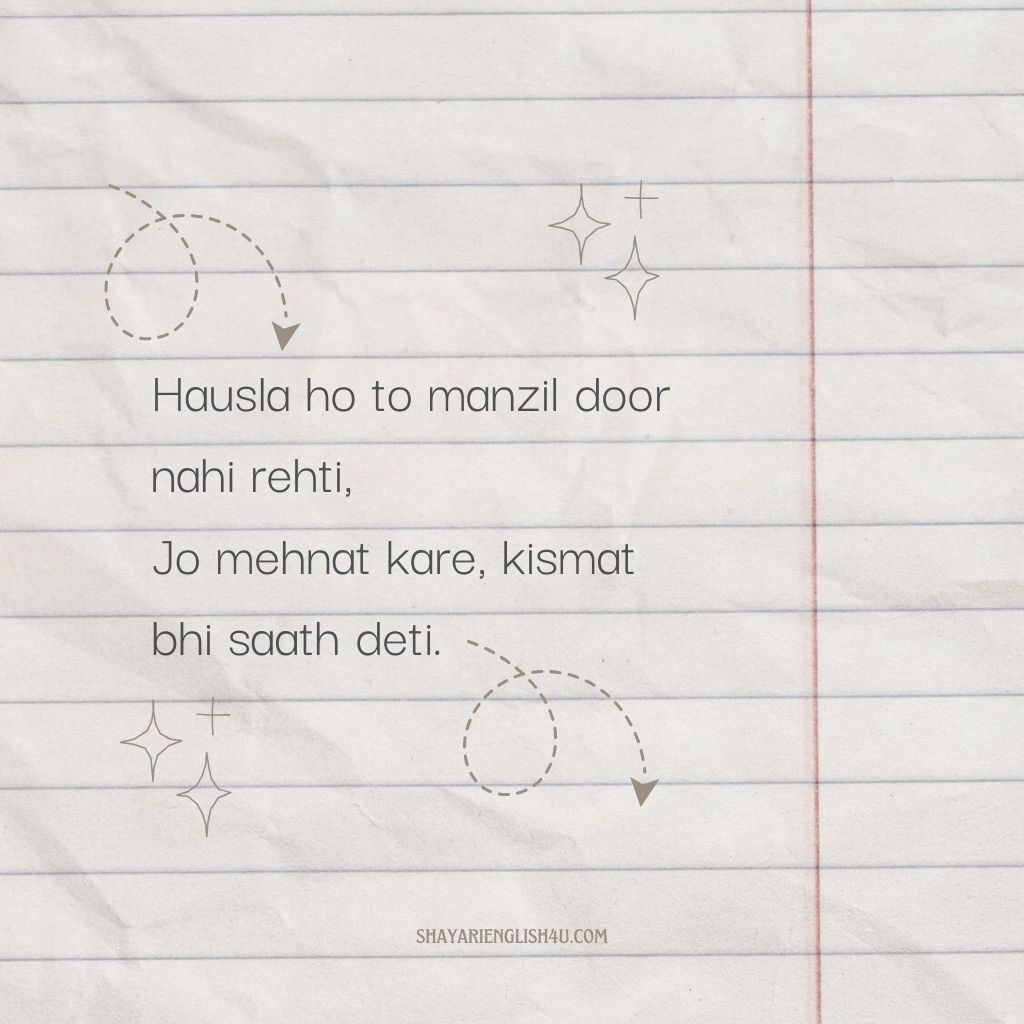 Hausla ho to manzil door
nahi rehti,
Jo mehnat kare, kismat
bhi saath deti.
SHAYARIENGLISH4U.COM